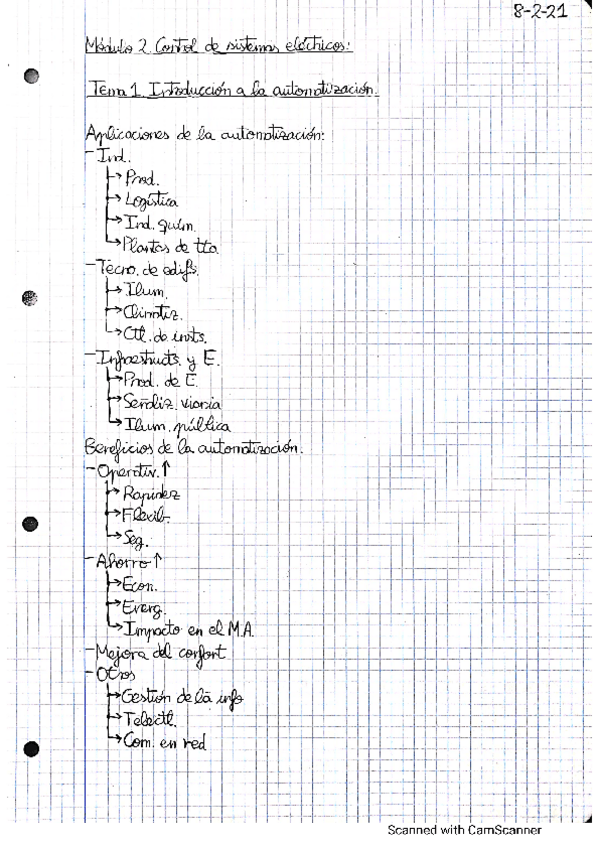 8-2-21
Módulo 2 Control de sistemas eléctricos:
Tema 1. Introducción a la automatización.
Aplicaciones de la automatización:
- Ind.
→ Prod.
→ Logística
→ Ind. quím.
→ Plantas de tto.
- Tecno. de edifs.
→ Ilum.
→ Climatiz.
→ Ctl. de insts.
- Infraestructs. y E.
→ Prod. de E.
→ Señaliz. viaria
→ Ilum. pública
Beneficios de la automatización:
- Operativ. ↑
→ Rapidez
→ Flexib.
→ Seg.
- Ahorro ↑
→ Econ.
→ Energ.
→ Impacto en el M.A.
- Mejora del confort
- Otros
→ Gestión de la info
→ Telectl.
→ Com. en red
Scanned with CamScanner